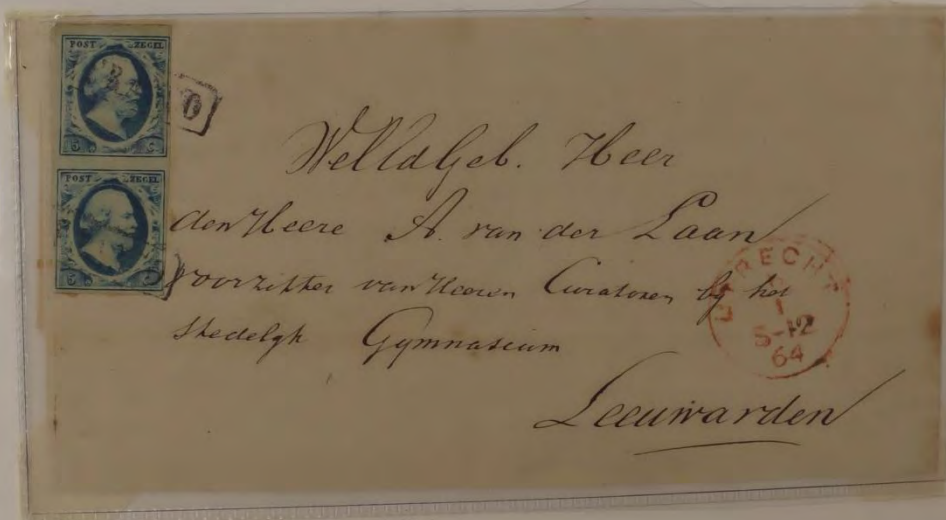 POST ZEGEL
5 C
POST ZEGEL
5 C
WelEdGeb. Heer
den Heere A. van der Laan
voorzitter van Heeren Curatoren bij het
stedelijk Gymnasium
Leeuwarden
UTRECHT
1
5-12
64